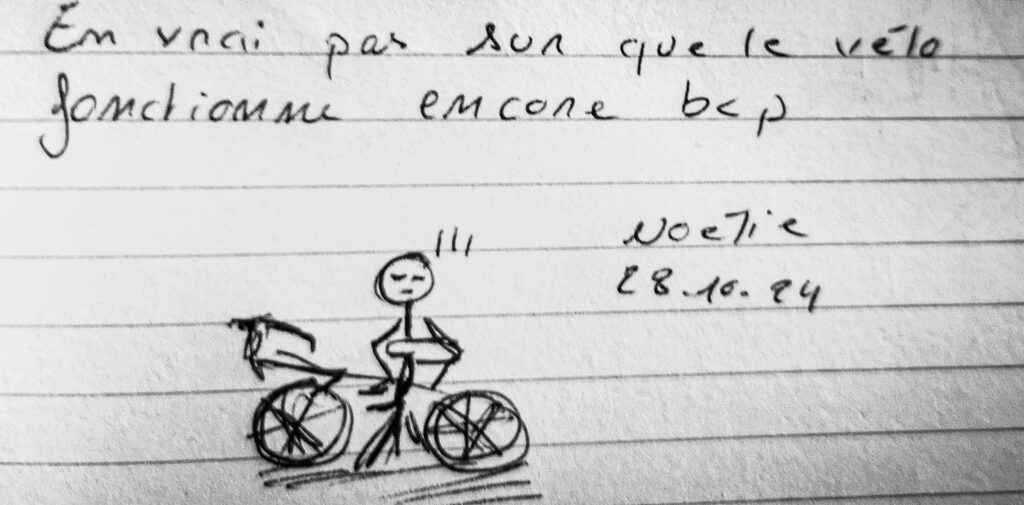 En vrai pas sur que le vélo
fonctionne encore bcp
!!!
Noelie
28.10.24